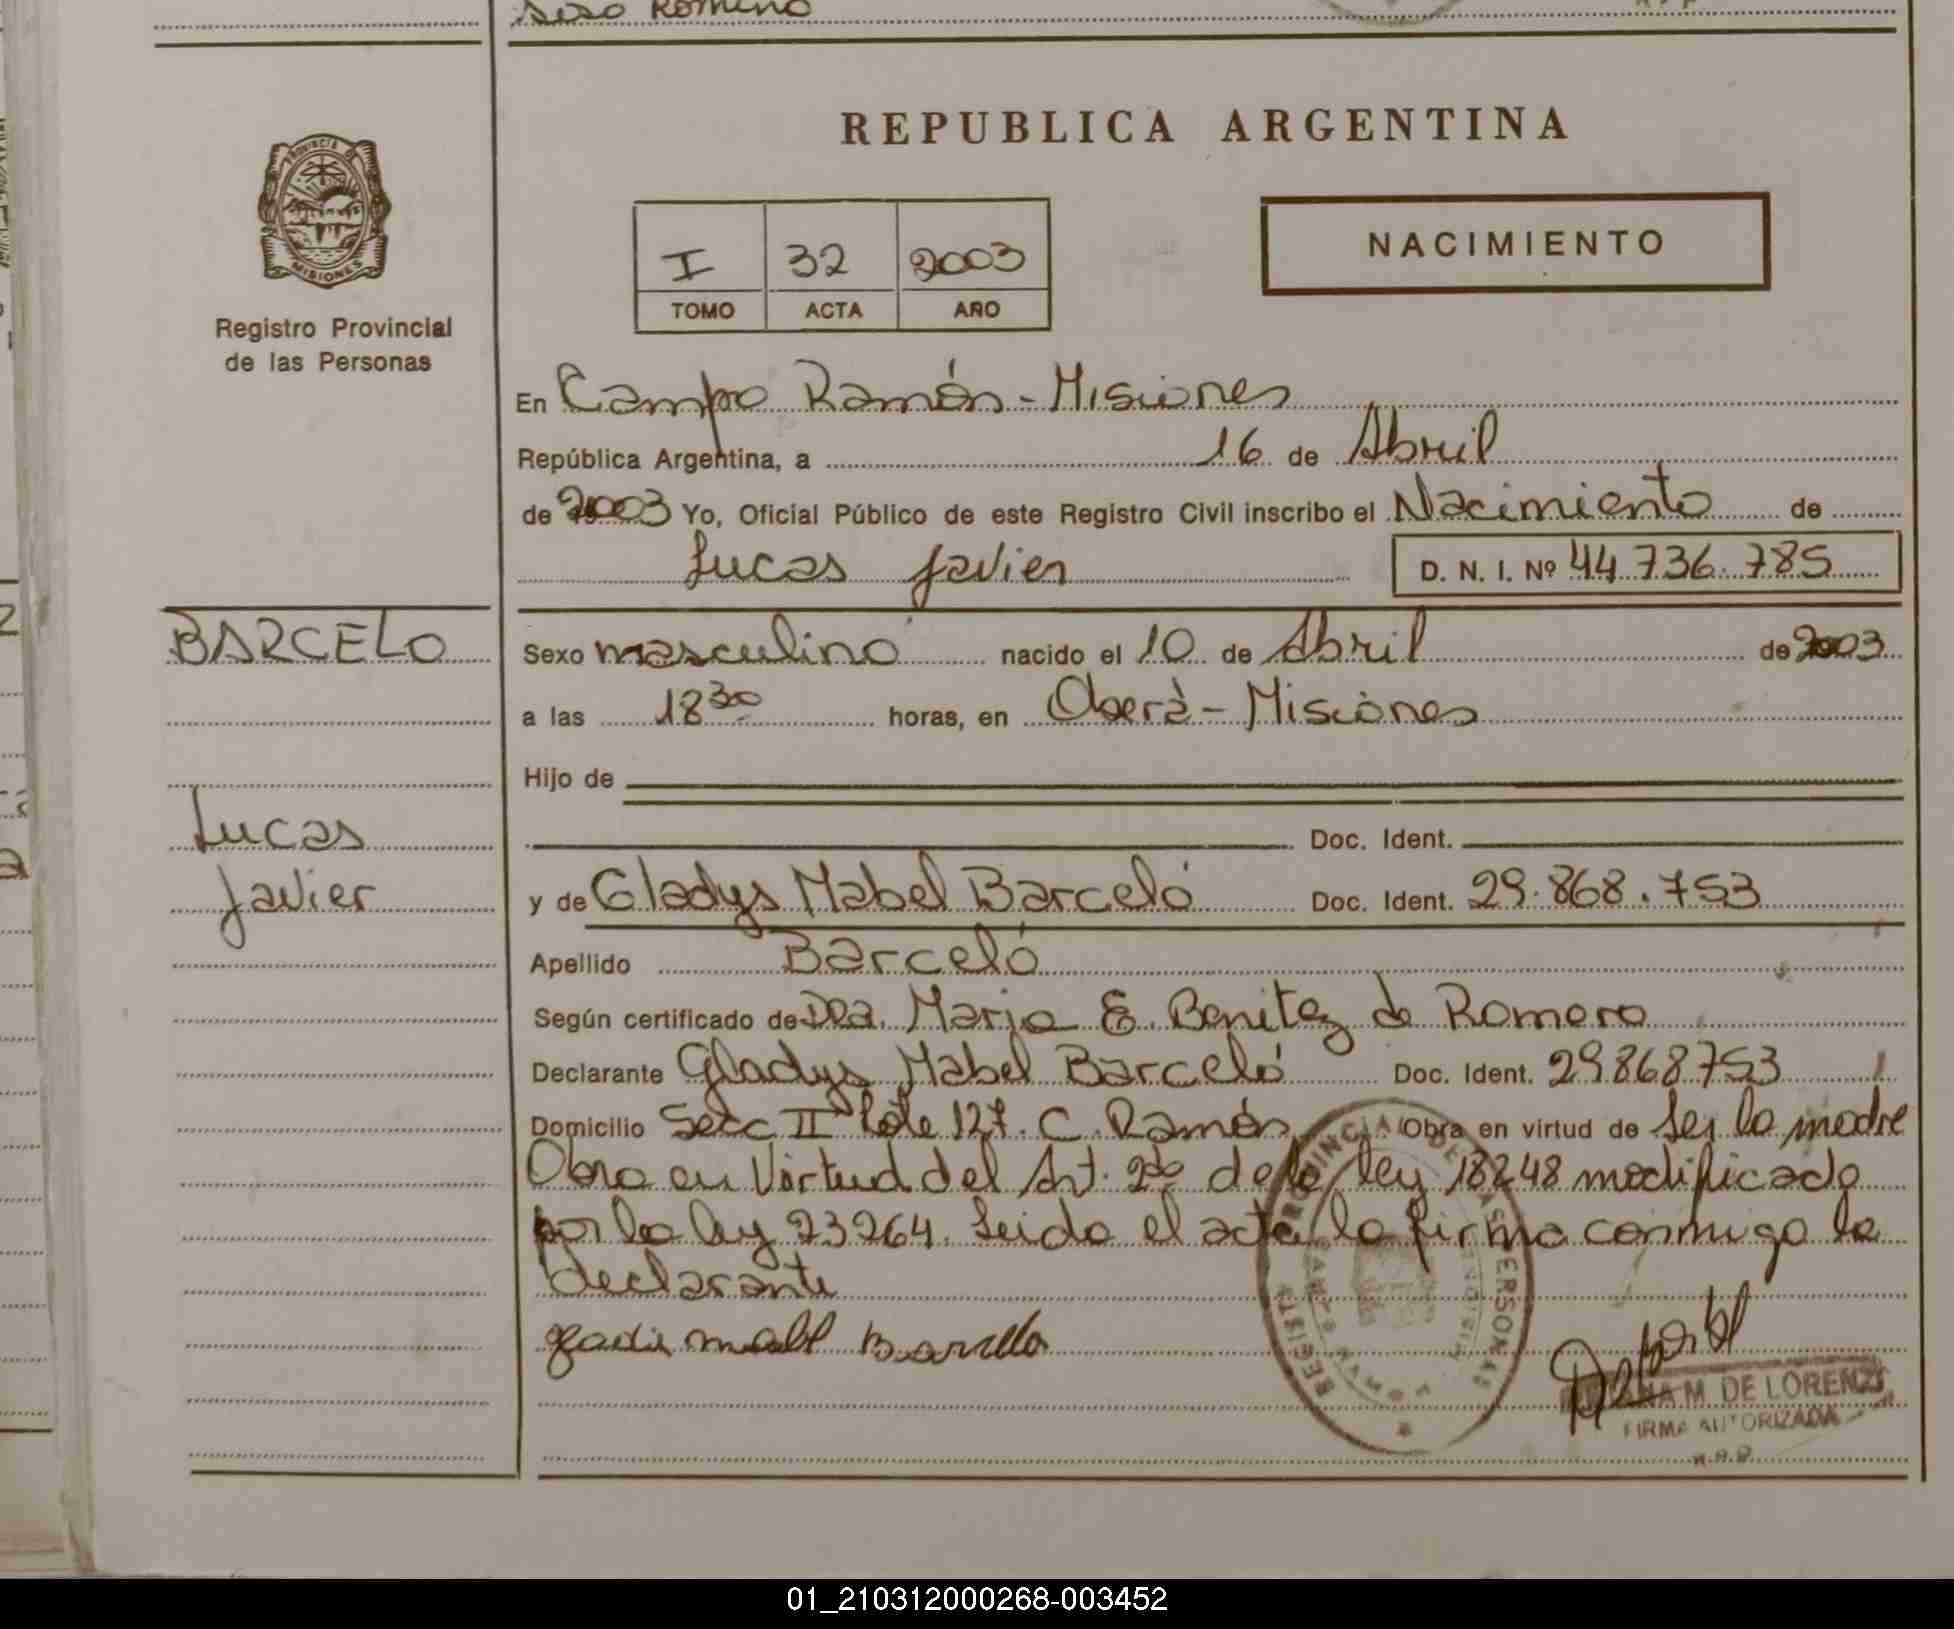 REPUBLICA ARGENTINA
PROVINCIA DE
MISIONES
Registro Provincial
de las Personas
I 32 2003
TOMO ACTA AÑO
NACIMIENTO
En Campo Ramón - Misiones
República Argentina, a 16 de Abril
de 2003 Yo, Oficial Público de este Registro Civil inscribo el Nacimiento de
Lucas Javier D. N. I. Nº 44.736.785
BARCELO
Sexo masculino nacido el 10 de Abril de 2003
a las 18 30 horas, en Oberà - Misiones
Hijo de
Lucas
Doc. Ident.
Javier
y de Gladys Mabel Barceló Doc. Ident. 29.868.753
Apellido Barceló
Según certificado de Dra. Maria E. Benitez de Romero
Declarante Gladys Mabel Barceló Doc. Ident. 29.868.753
Domicilio Secc II Lote 127. C. Ramón Obra en virtud de ser la madre
Obra en Virtud del Art. 2do de la ley 18248 modificado
por la ley 23264. Leida el acta la firma conmigo la
declarante
M. DE LORENZI
FIRMA AUTORIZADA
01_210312000268-003452